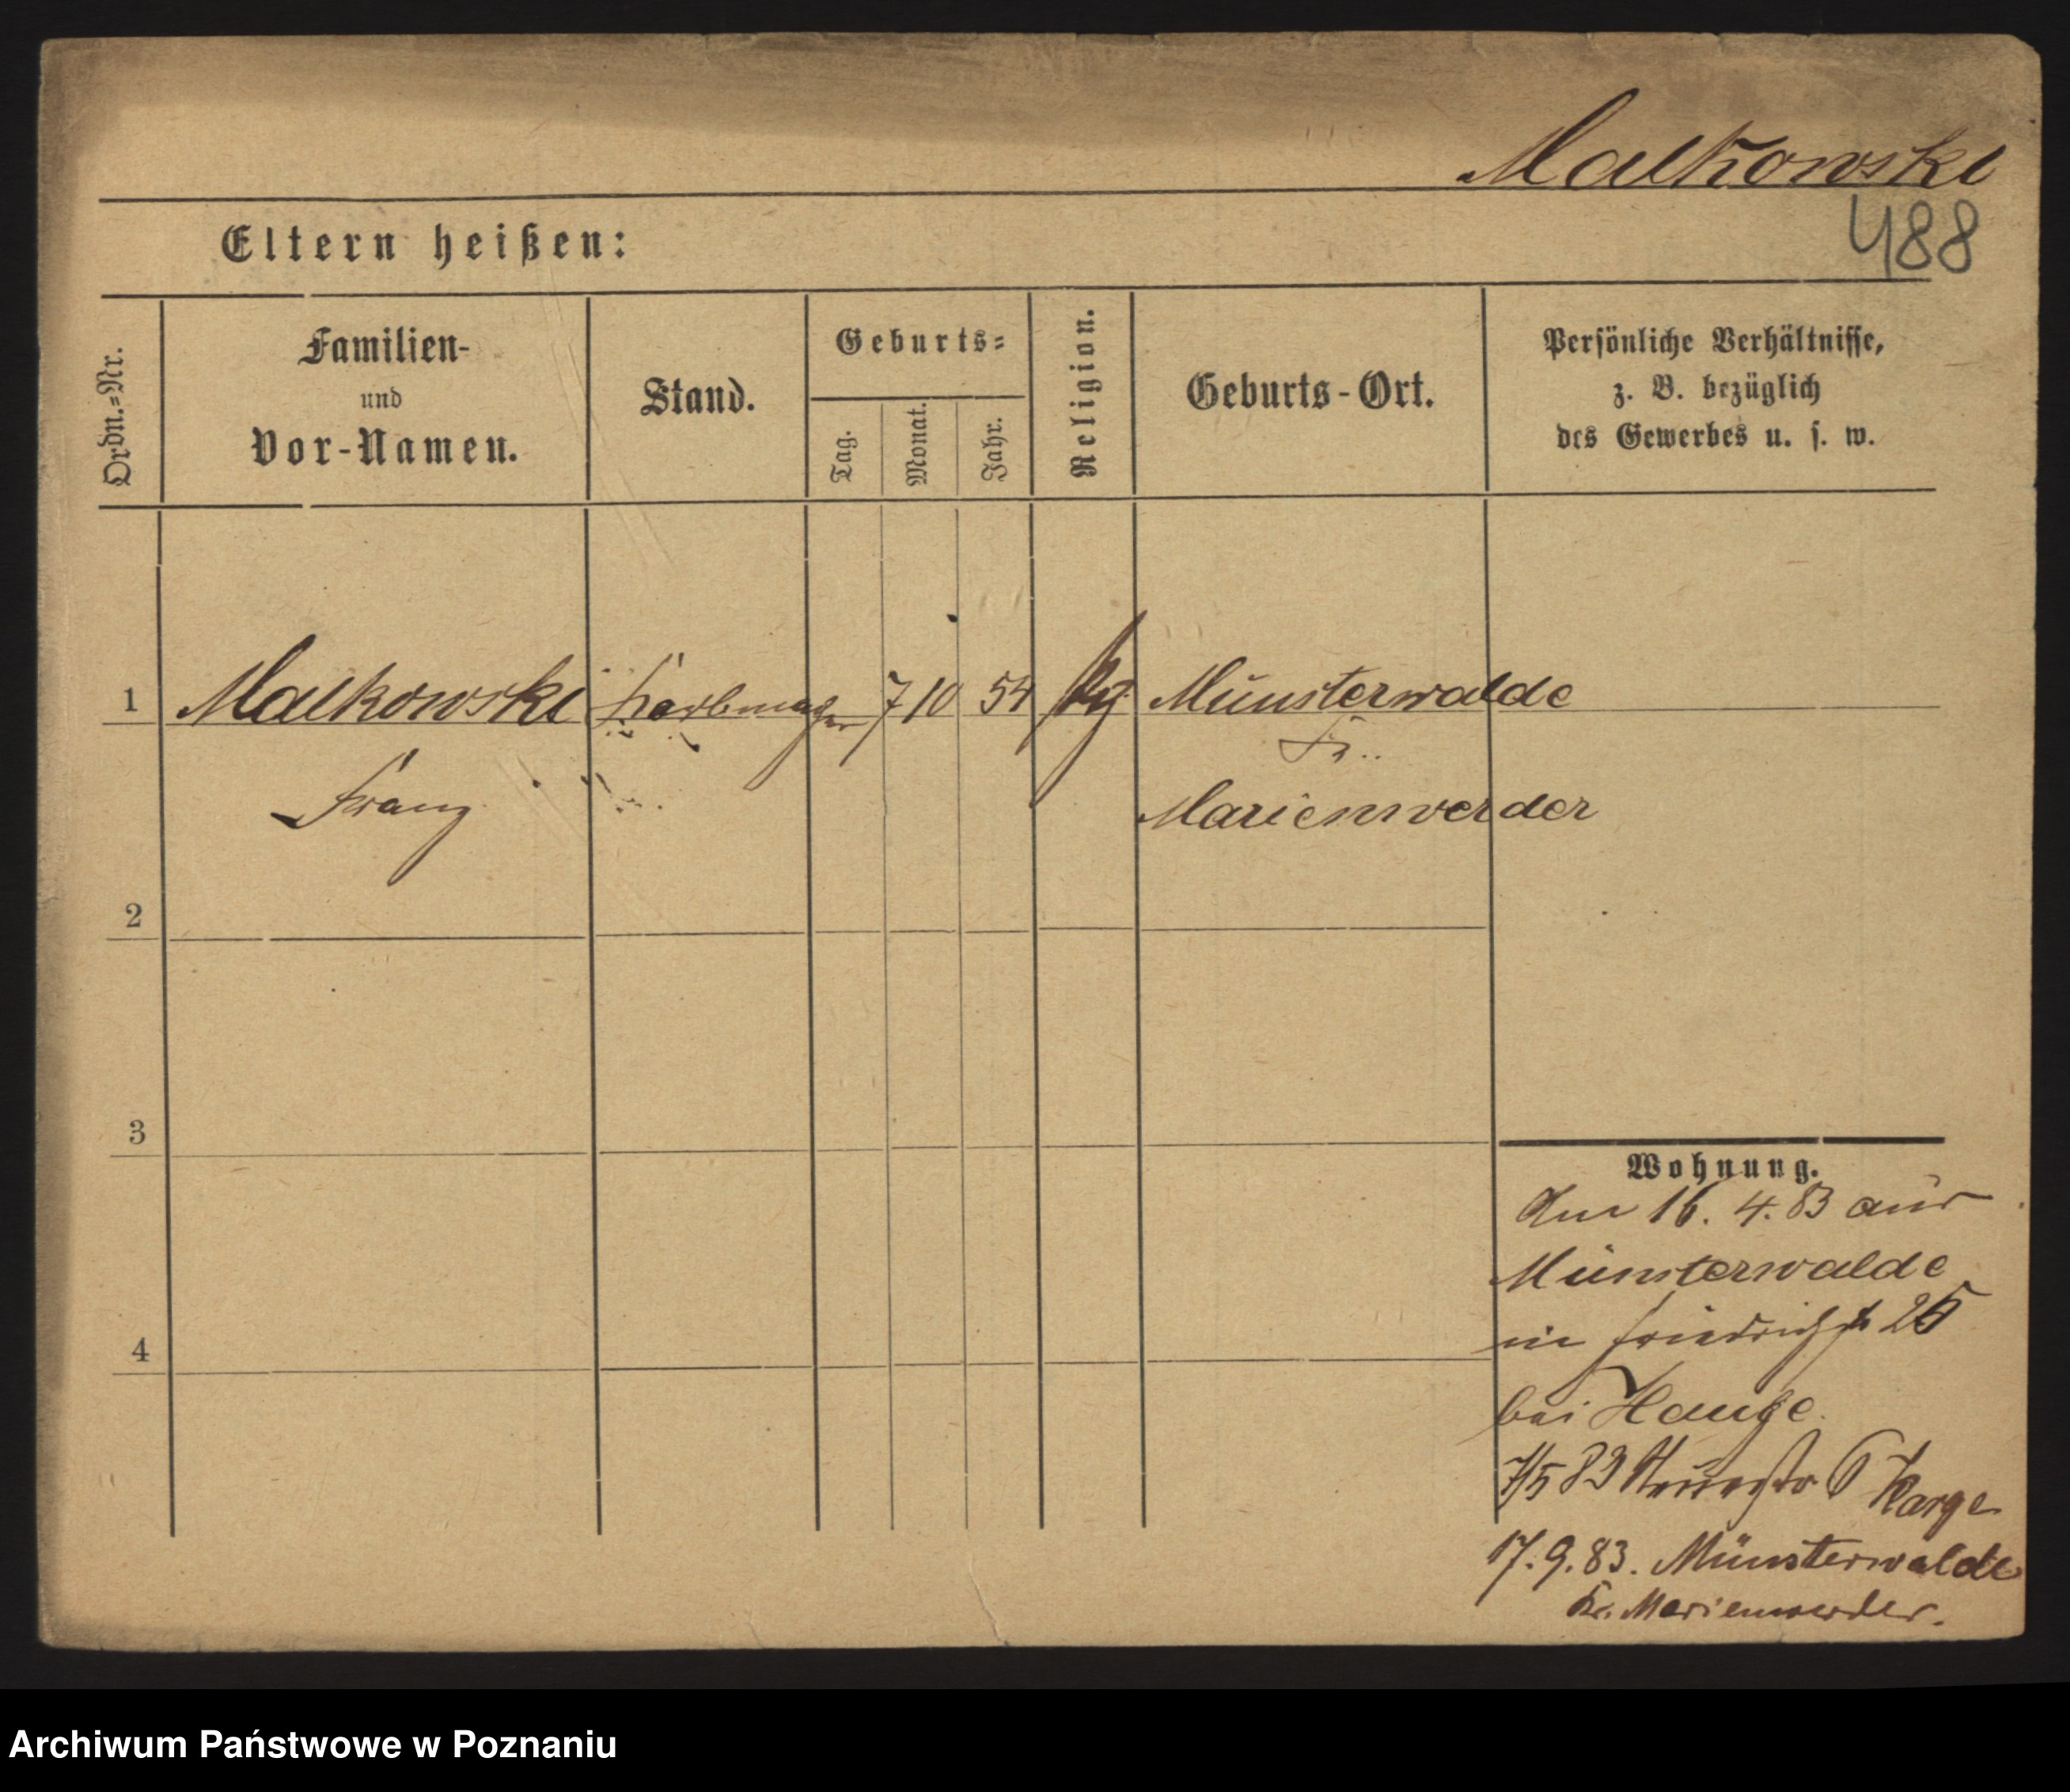 Malkowski
488
Eltern heißen:
Ordn.-Nr.
Familien-
und
Vor-Namen.
Stand.
Geburts-
Tag.
Monat.
Jahr.
Religion.
Geburts-Ort.
Persönliche Verhältnisse,
z. B. bezüglich
des Gewerbes u. s. w.
1 Malkowski 7 10 54 Münsterwalde
Kr.
Franz Marienwerder
2
3
4
Wohnung.
Am 16. 4. 83 aus
Münsterwalde
in Friedrichstr 25
bei
7/5 83 6 Karge
17. 9. 83. Münsterwalde
Kr. Marienwerder.
Archiwum Państwowe w Poznaniu